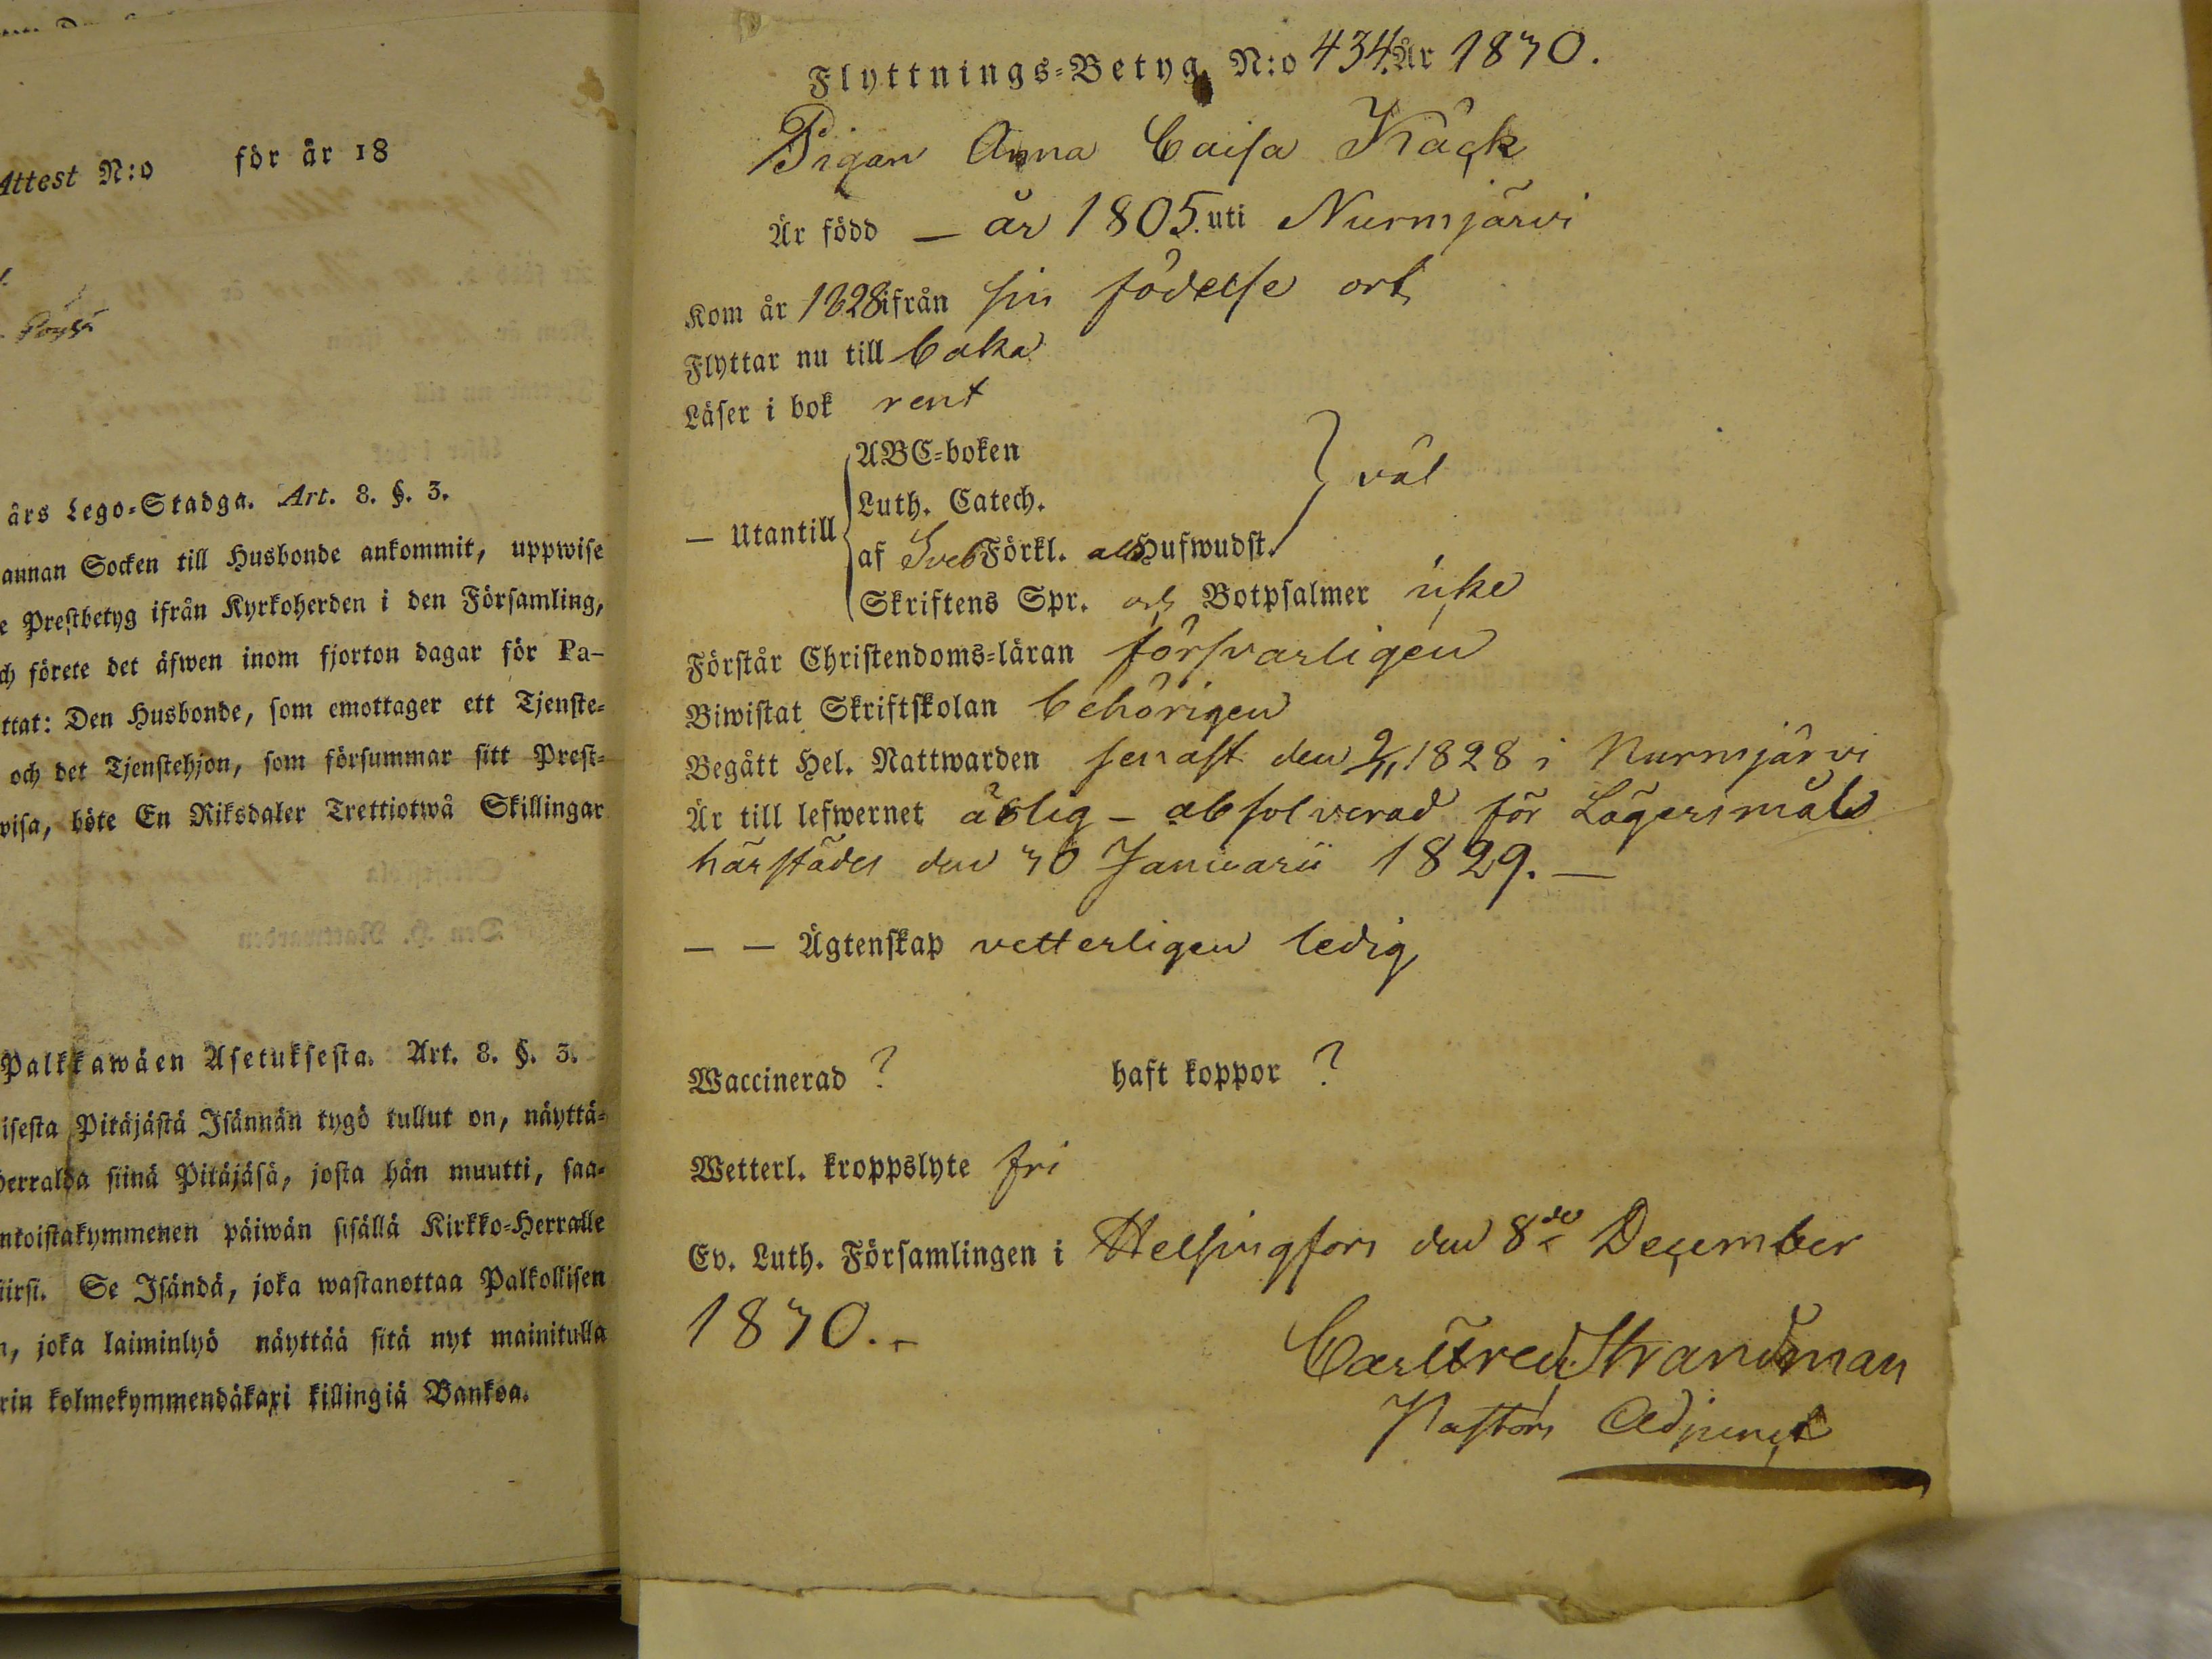 Attest N:o för år 18
års Lego-Stadga. Art. 8. §. 3.
annan Socken till Husbonde ankommit, uppwise
e Prestbetyg ifrån Kyrkoherden i den Församling,
ch förete det äfwen inom fjorton dagar för Pa-
ttat: Den Husbonde, som emottager ett Tjenste-
och det Tjenstehjon, som försummar sitt Prest-
wisa, böte En Riksdaler Trettiotwå Skillingar
Palkkawäen Asetuksesta. Art. 8. §. 3.
isesta Pitäjästä Isännän tygö tullut on, näyttä-
herralda siinä Pitäjäsä, josta hän muutti, saa-
ntoistakymmenen päiwän sisällä Kirkko-Herralle
iirsi. Se Isändä, joka wastanottaa Palkollisen
n, joka laiminlyö näyttää sitä nyt mainitulla
rin kolmekymmendäkaxi killingiä Bankoa.
Flyttnings-Betyg N:o 434. År 1830.
Pigan Anna Caisa Käck
Är född — år 1805. uti Nurmjärvi
Kom år 1828 ifrån sin födelse ort
Flyttar nu till baka
Läser i bok rent
ABC-boken
Luth. Catech. } väl
— Utantill
af Sveb Förkl. alla Hufwudst.
Skriftens Spr. och Botpsalmer icke
Förstår Christendoms-läran försvarligen
Biwistat Skriftskolan behörigen
Begått Hel. Nattwarden senast den 9/11 1828 i Nurmjärvi
Är till lefwernet ärlig – absolverad för Lägersmåls
härstädes den 30 Januarii 1829. —
— — Ägtenskap vetterligen ledig
Waccinerad ? haft koppor ?
Wetterl. kroppslyte fri
Ev. Luth. Församlingen i Helsingfors den 8de December
1830. –
Carl Fred Strandman
Pastors Adjunct